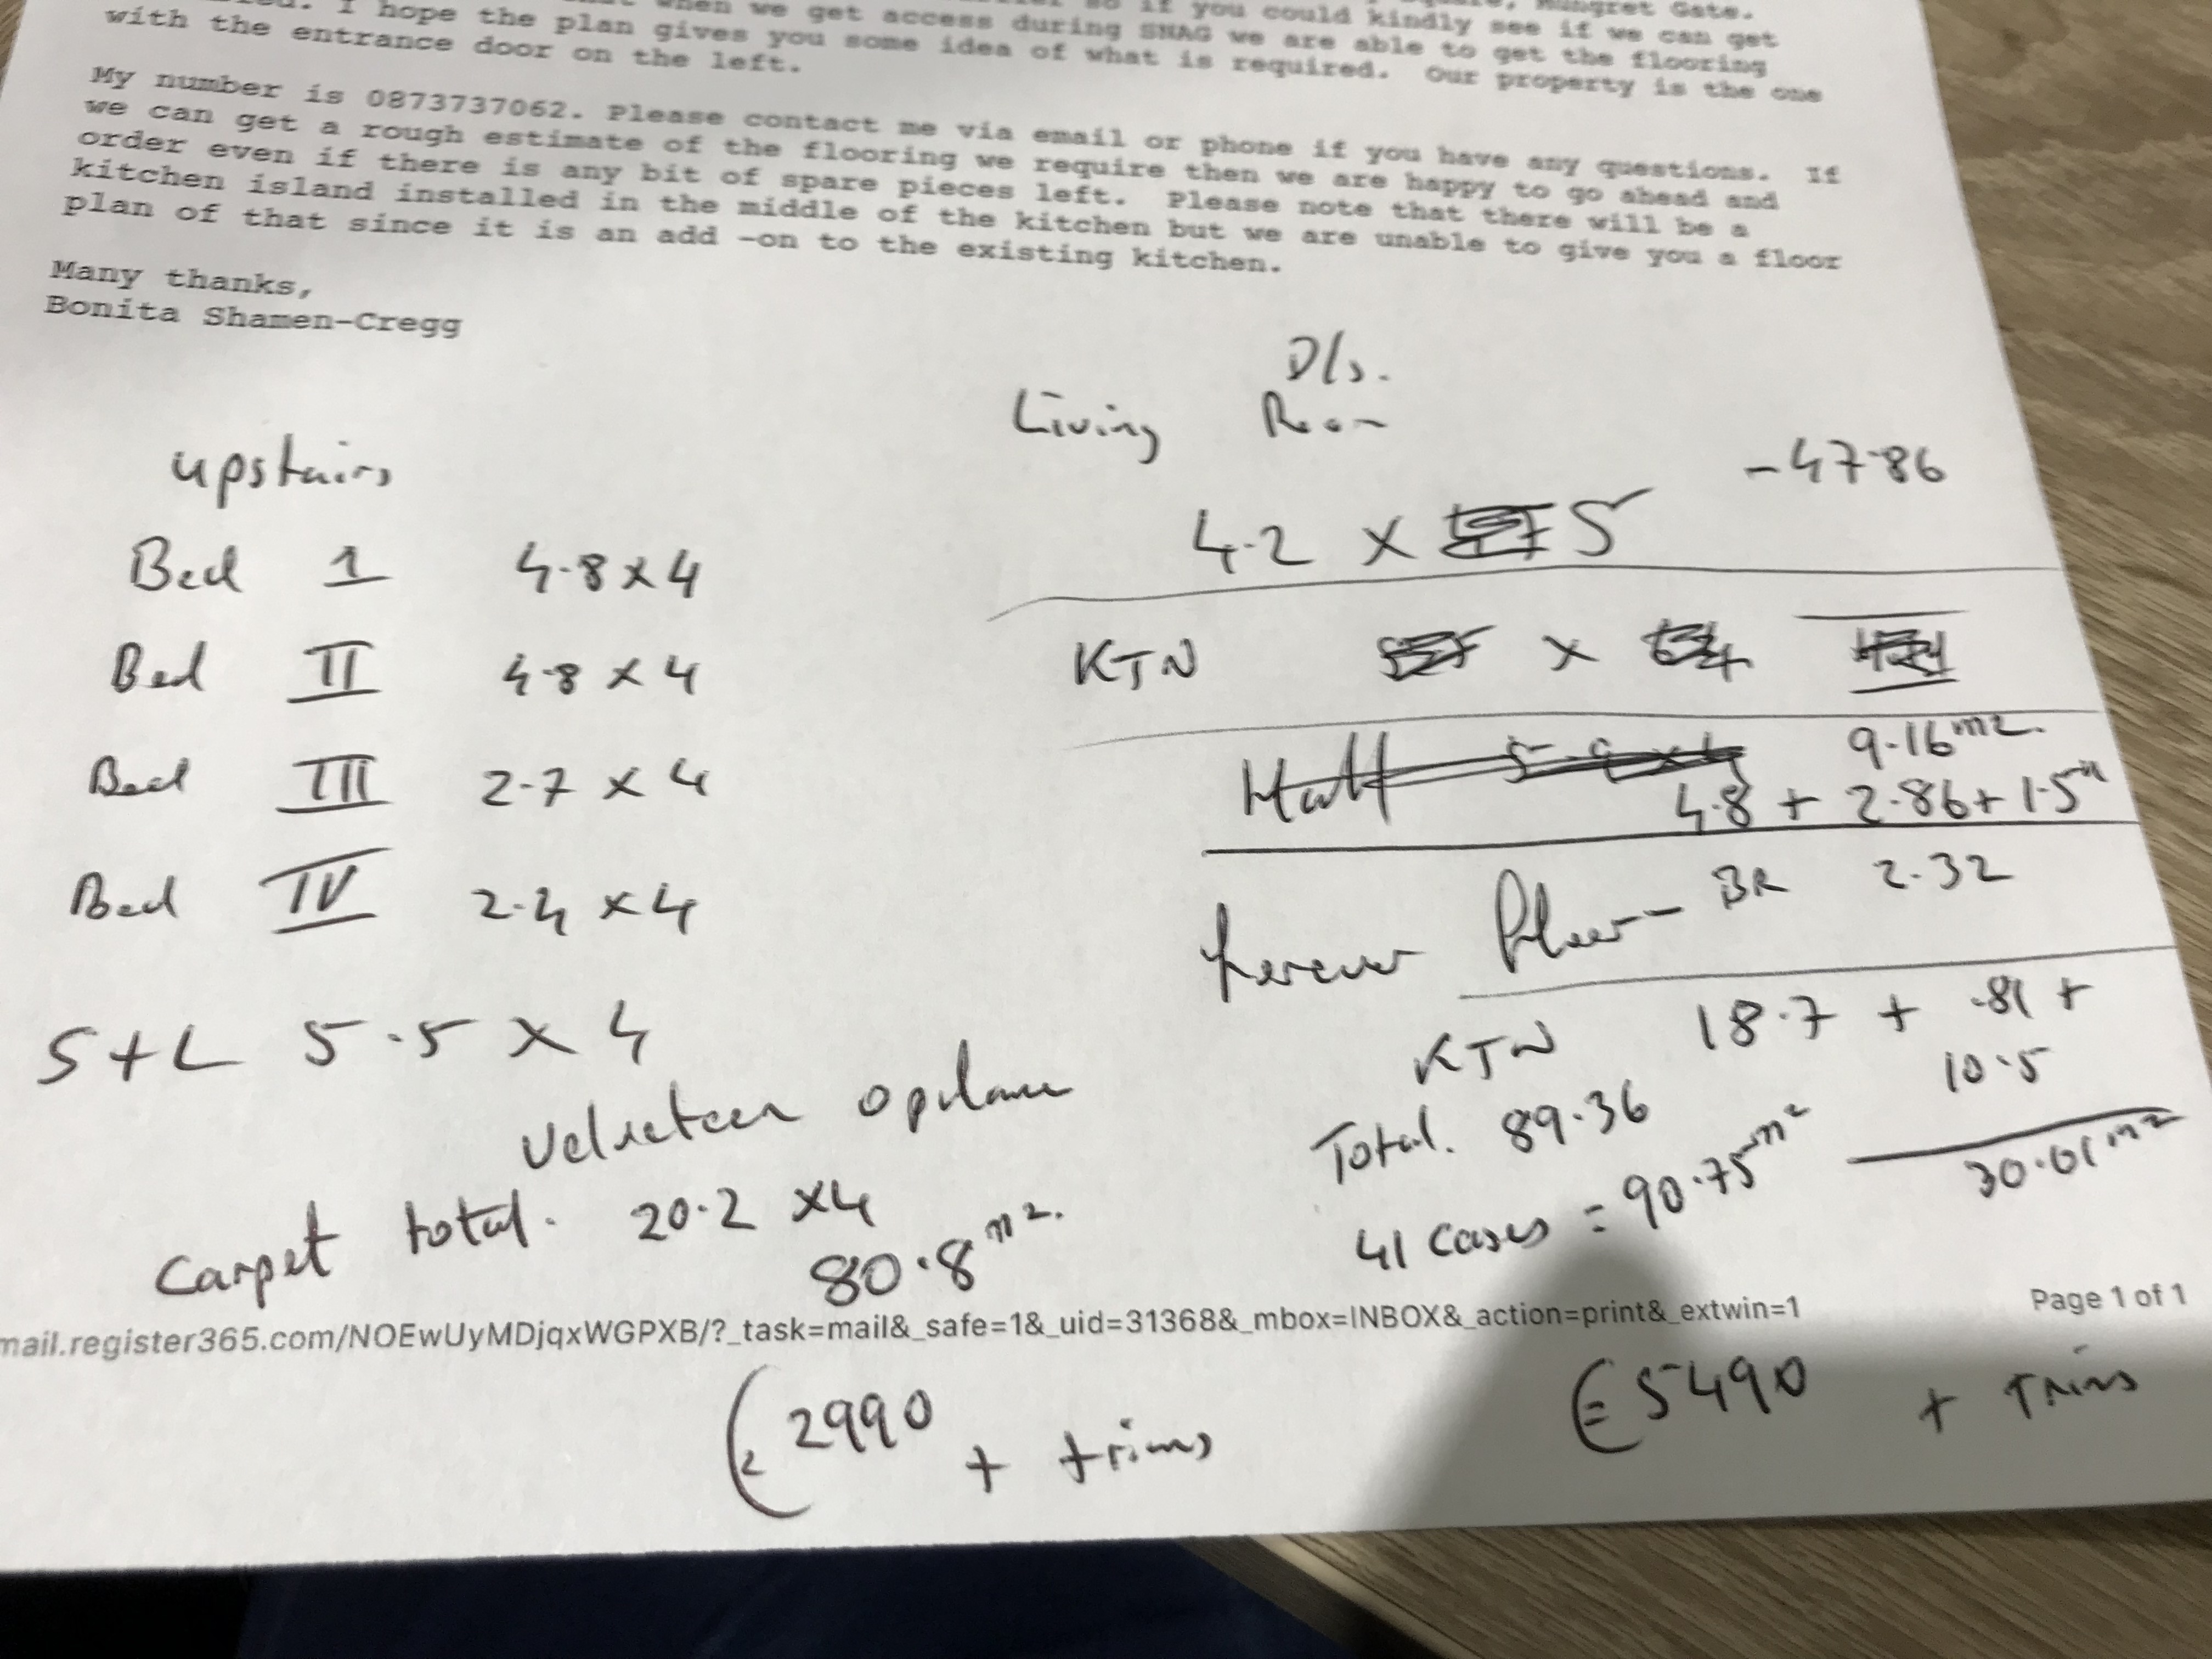 Mungret Gate.
when we get access during SNAG we are able to get the flooring
I hope the plan gives you some idea of what is required. Our property is the one
with the entrance door on the left.
My number is 0873737062. Please contact me via email or phone if you have any questions. If
we can get a rough estimate of the flooring we require then we are happy to go ahead and
order even if there is any bit of spare pieces left. Please note that there will be a
kitchen island installed in the middle of the kitchen but we are unable to give you a floor
plan of that since it is an add -on to the existing kitchen.
Many thanks,
Bonita Shamen-Cregg
upstairs
Bed 1 4.8 x 4
Bed II 4.8 x 4
Bed III 2.7 x 4
Bed IV 2.4 x 4
S+L 5.5 x 4
Velveteen
Carpet total. 20.2 x4
80.8 m2.
€2990 + trims
D/s.
Living Room
- 47.86
4.2 x 5
KTN x
Hall 5.9 x 4 9.16 m2.
4.8 + 2.86 + 1.5
Forever Floor - BR 2.32
KTN 18.7 + .81 +
10.5
30.01 m2
Total. 89.36
41 Cases = 90.75 m2
mail.register365.com/NOEwUyMDjqxWGPXB/?_task=mail&_safe=1&_uid=31368&_mbox=INBOX&_action=print&_extwin=1
Page 1 of 1
€5490 + Trims